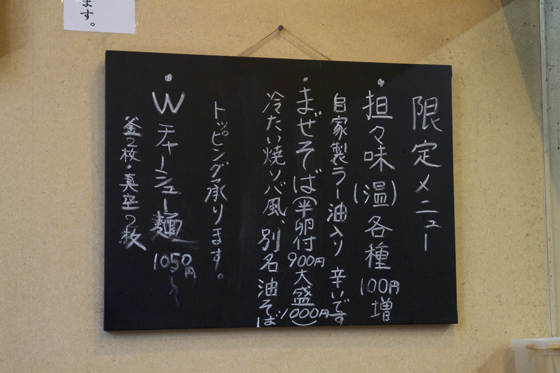 限定メニュー
・担々味(温)各種100円増
自家製ラー油入り 辛いです
・まぜそば(半卵付900円大盛1000円)
冷たい焼ソバ風、別名油そば
トッピング承ります。
・Wチャーシュー麺1050円〜
釜2枚・真空2枚
ます。